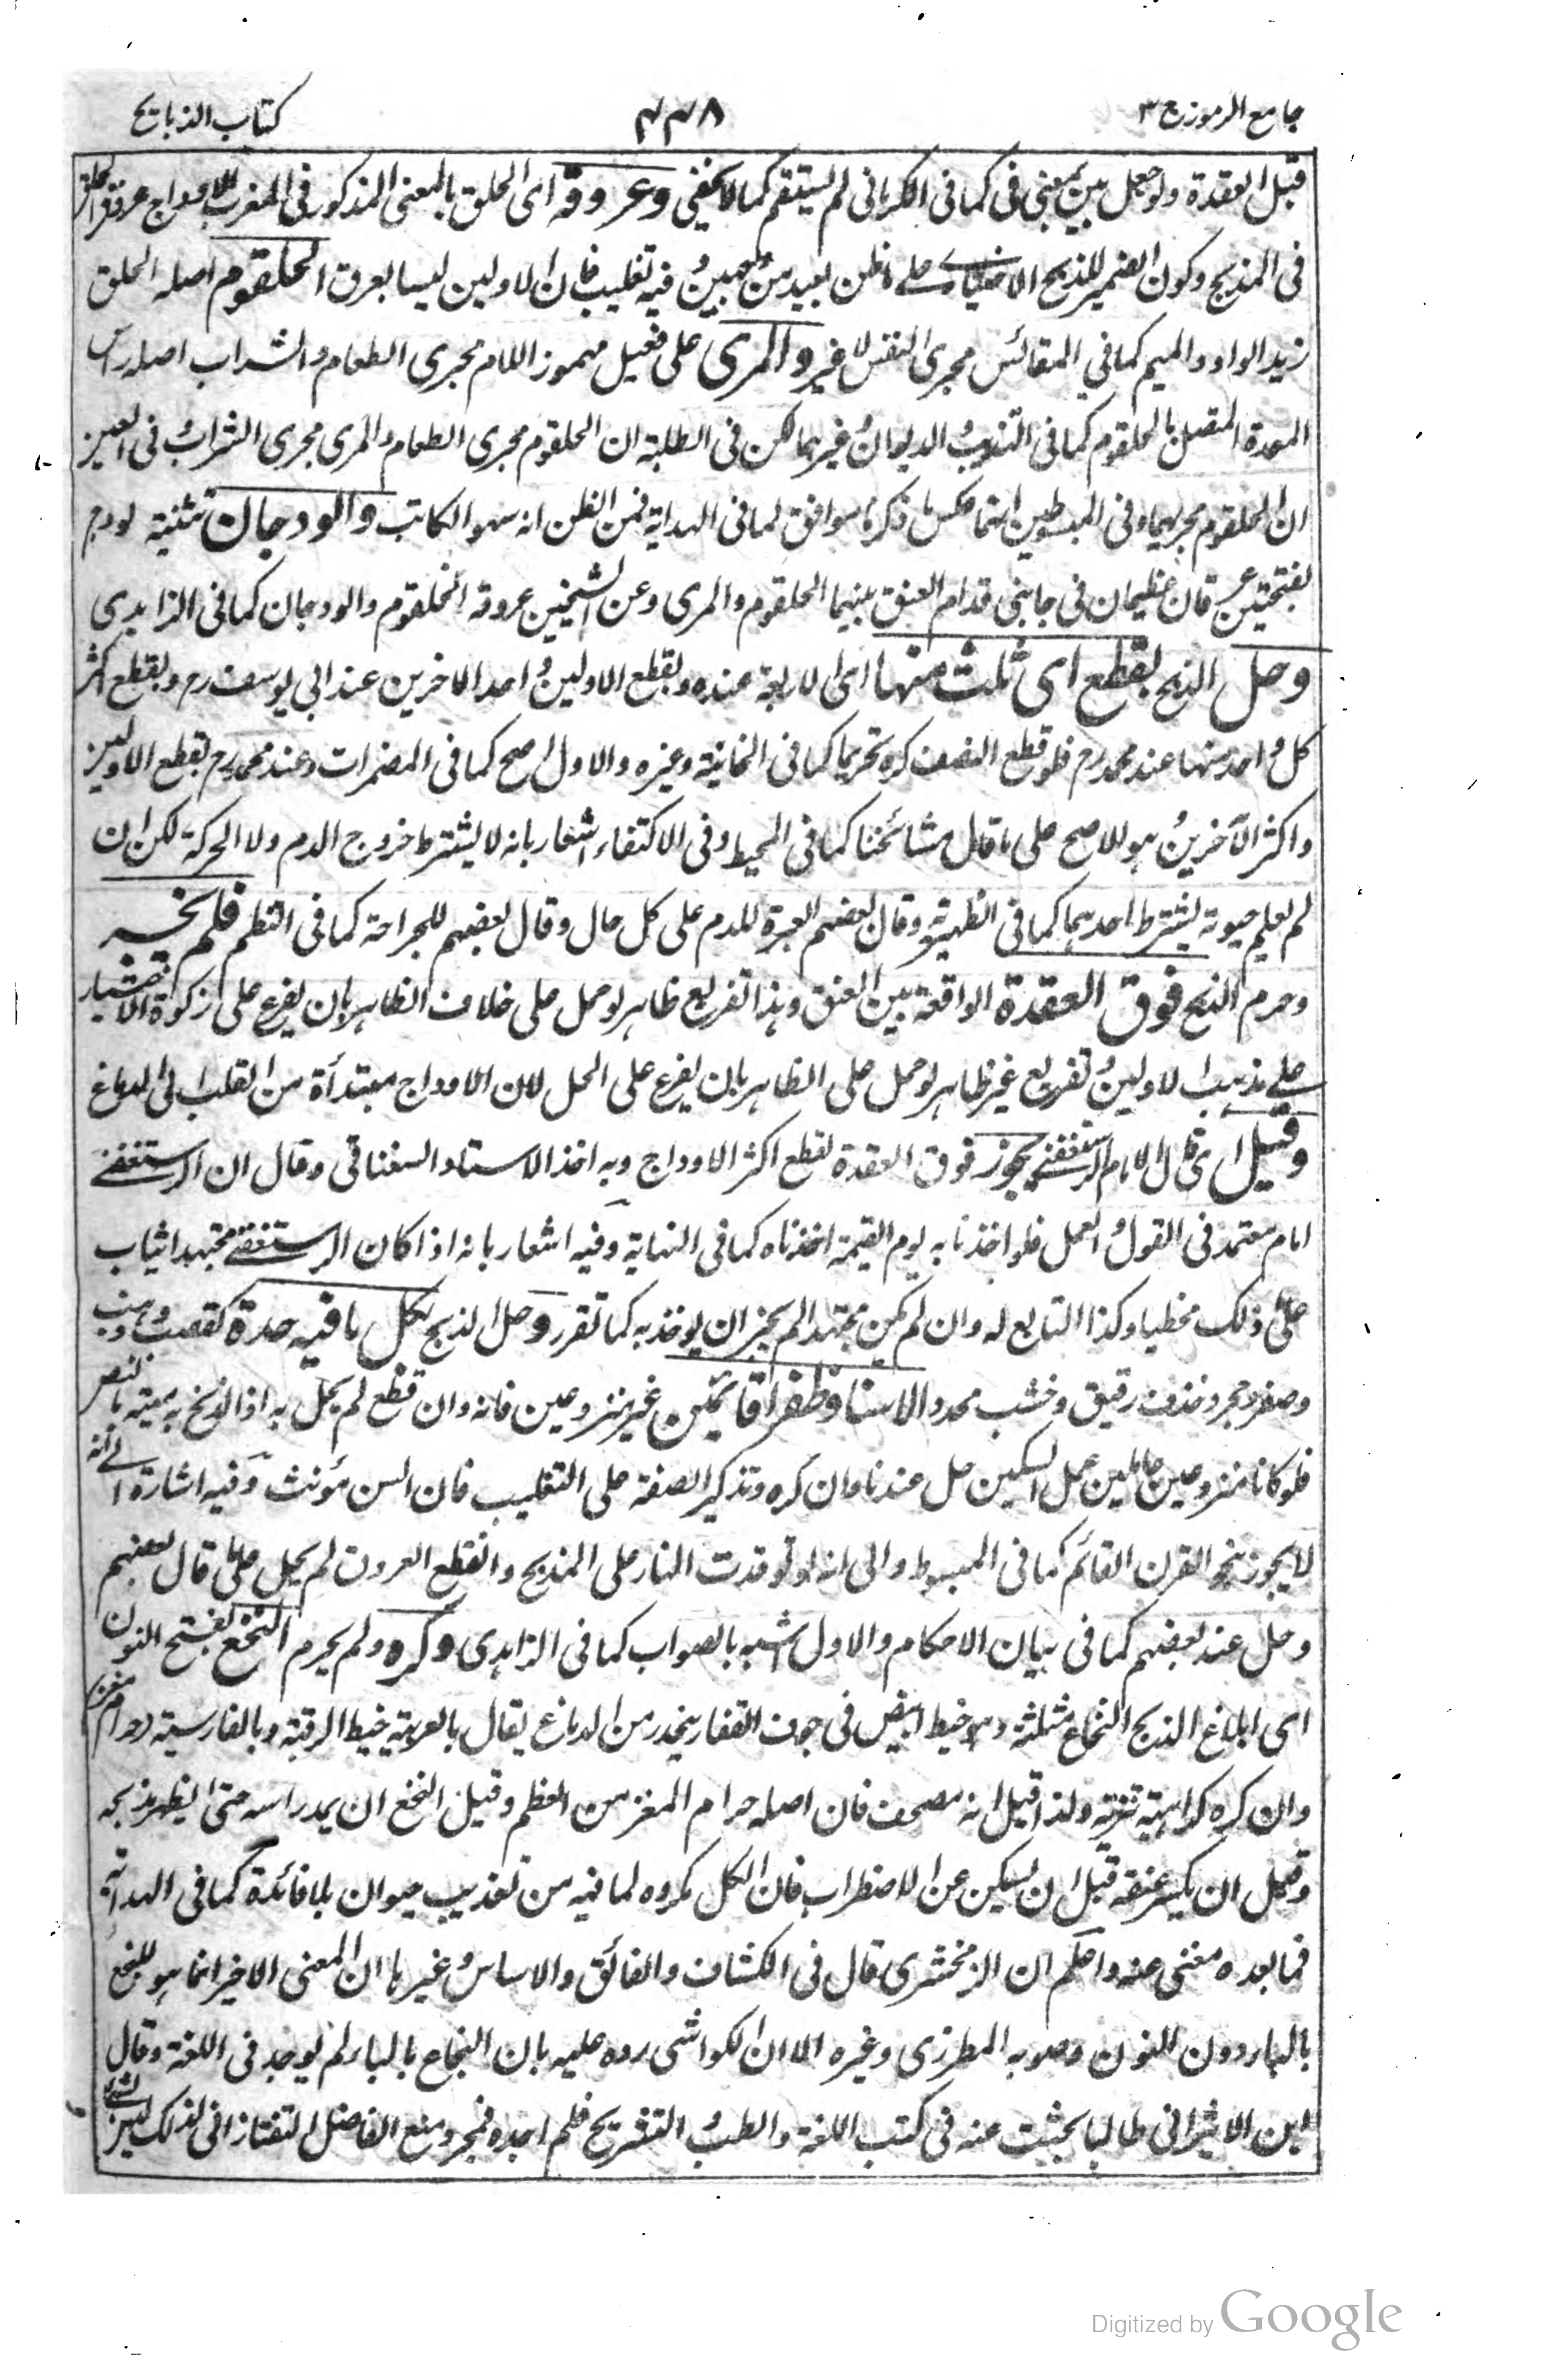 جامع الرموز ج ٣
٤٤٨
كتاب الذبايح
قبل العقدة ولو جعل بين بمعنى فى كما فى الكرمانى لم يستقم كما لا يخفى وعروقه اى الحلق بالمعنى المذكور فى المغرب الاوداج عروق الحلق
فى المذبح وكون الضمير للذبح الاختيارى على ما ظن بعيد من وفيه تغليب فان الاولين ليسا بعرق الحلقوم اصله الحلق
زيد الواو والميم كما فى المقائس مجرى النفس لا غير والمرى على فعيل مهموز اللام مجرى الطعام والشراب اصله راس
المعدة المتصل بالحلقوم كما فى التهذيب والديوان وغيرهما لكن فى الطلبة ان الحلقوم مجرى الطعام والمرى مجرى الشراب وفى العين
ان الحلقوم مجريهما وفى المبسوطين انهما عكس ما ذكرنا موافق لما فى الهداية فمن الظن انه سهو الكاتب والودجان تثنية لودج
بفتحتين عرقان عظيمان فى جانبى قدام العنق بينهما الحلقوم والمرى وعن الشيخين عروقه الحلقوم والودجان كما فى الزاهدى
وحل الذبح بقطع اى ثلث منها اى الاربعة عنده وبقطع الاولين واحد الاخرين عند ابى يوسف رح وبقطع اكثر
كل واحد منها عند محمد رح فلو قطع النصف كره تحريما كما فى الخانية وغيره والاول اصح كما فى المضمرات وعند محمد رح بقطع الاولين
واكثر الآخرين وهو الاصح على ما قال مشائخنا كما فى المحيط وفى الاكتفاء اشعار بانه لا يشترط خروج الدم ولا الحركة لكن ان
لم يعلم حيوته يشترط احدهما كما فى الظهيرية وقال بعضهم العبرة للدم على كل حال وقال بعضهم للجراحة كما فى النظم فلم يجز
وحرم الذبح فوق العقدة الواقعة بين العنق وهذا تفريع ظاهر لو حمل على خلاف الظاهر بان يفرع على زكوة الاختيار
على مذهب الاولين وتفريع غير ظاهر لو حمل على الظاهر بان يفرع على الحل لان الاوداج مبتدأة من القلب الى الدماغ
وقيل اى قال الامام الرستغفنى يجوز فوق العقدة لقطع اكثر الاوداج وبه اخذ الاستاد السغناقى وقال ان الرستغفنى
امام معتمد فى القول والعمل فلو اخذنا به يوم القيمة اخذناه كما فى النهاية وفيه اشعار بانه اذا كان الرستغفنى مجتهدا يثاب
على ذلك مخطيا وكذا التابع له وان لم يكن مجتهدا لم يجز ان يوخذ به كما تقرر وحل الذبح بكل ما فيه حدة كقصب وذهب
وصفر وحجر وخذف رقيق وخشب محدد الا سنا وظفرا قائمين غير منزوعين فانه وان قطع لم يحل به اذ الذبح به ميتة بالنص
فلو كانا منزوعين عاملين عمل السكين حل عندنا وان كره وتذكير الصفة على التغليب فان السن مؤنث وفيه اشارة الى انه
لا يجوز ذبح القرن القائم كما فى المبسوط والى انه لو توقدت النار على المذبح وانقطع العروق لم يحل على ما قال بعضهم
وحل عند بعضهم كما فى بيان الاحكام والاول اشبه بالصواب كما فى الزاهدى وكره ولم يحرم النخع بفتح النون
اى ابلاغ الذبح النخاع مثلثة وهو خيط ابيض فى جوف الفقار ينحدر من الدماغ يقال بالعربية خيط الرقبة وبالفارسية حرام مغز
وان كره كراهية تنزيه ولذا قيل انه مصحف فان اصله حرام المغز من العظم وقيل النخع ان يمد راسه حتى يظهر مذبحه
وقيل ان يكسر عنقه قبل ان يسكن عن الاضطراب فان الكل مكروه لما فيه من تعذيب حيوان بلا فائدة كما فى الهداية
فما بعده مغنى عنه واعلم ان الزمخشرى قال فى الكشاف والفائق والاساس وغيرها ان المعنى الاخير انما هو للبخع
بالباء دون النون وصوبه المطرزى وغيره الا ان الكواشى رده عليه بان البخاع بالباء لم يوجد فى اللغة وقال
ابن الاثير انى طالما بحثت عنه فى كتب اللغة والطب والتشريح فلم اجده فمجرد منع الفاضل التفتازانى لذلك ليس بشئ
Digitized by Google